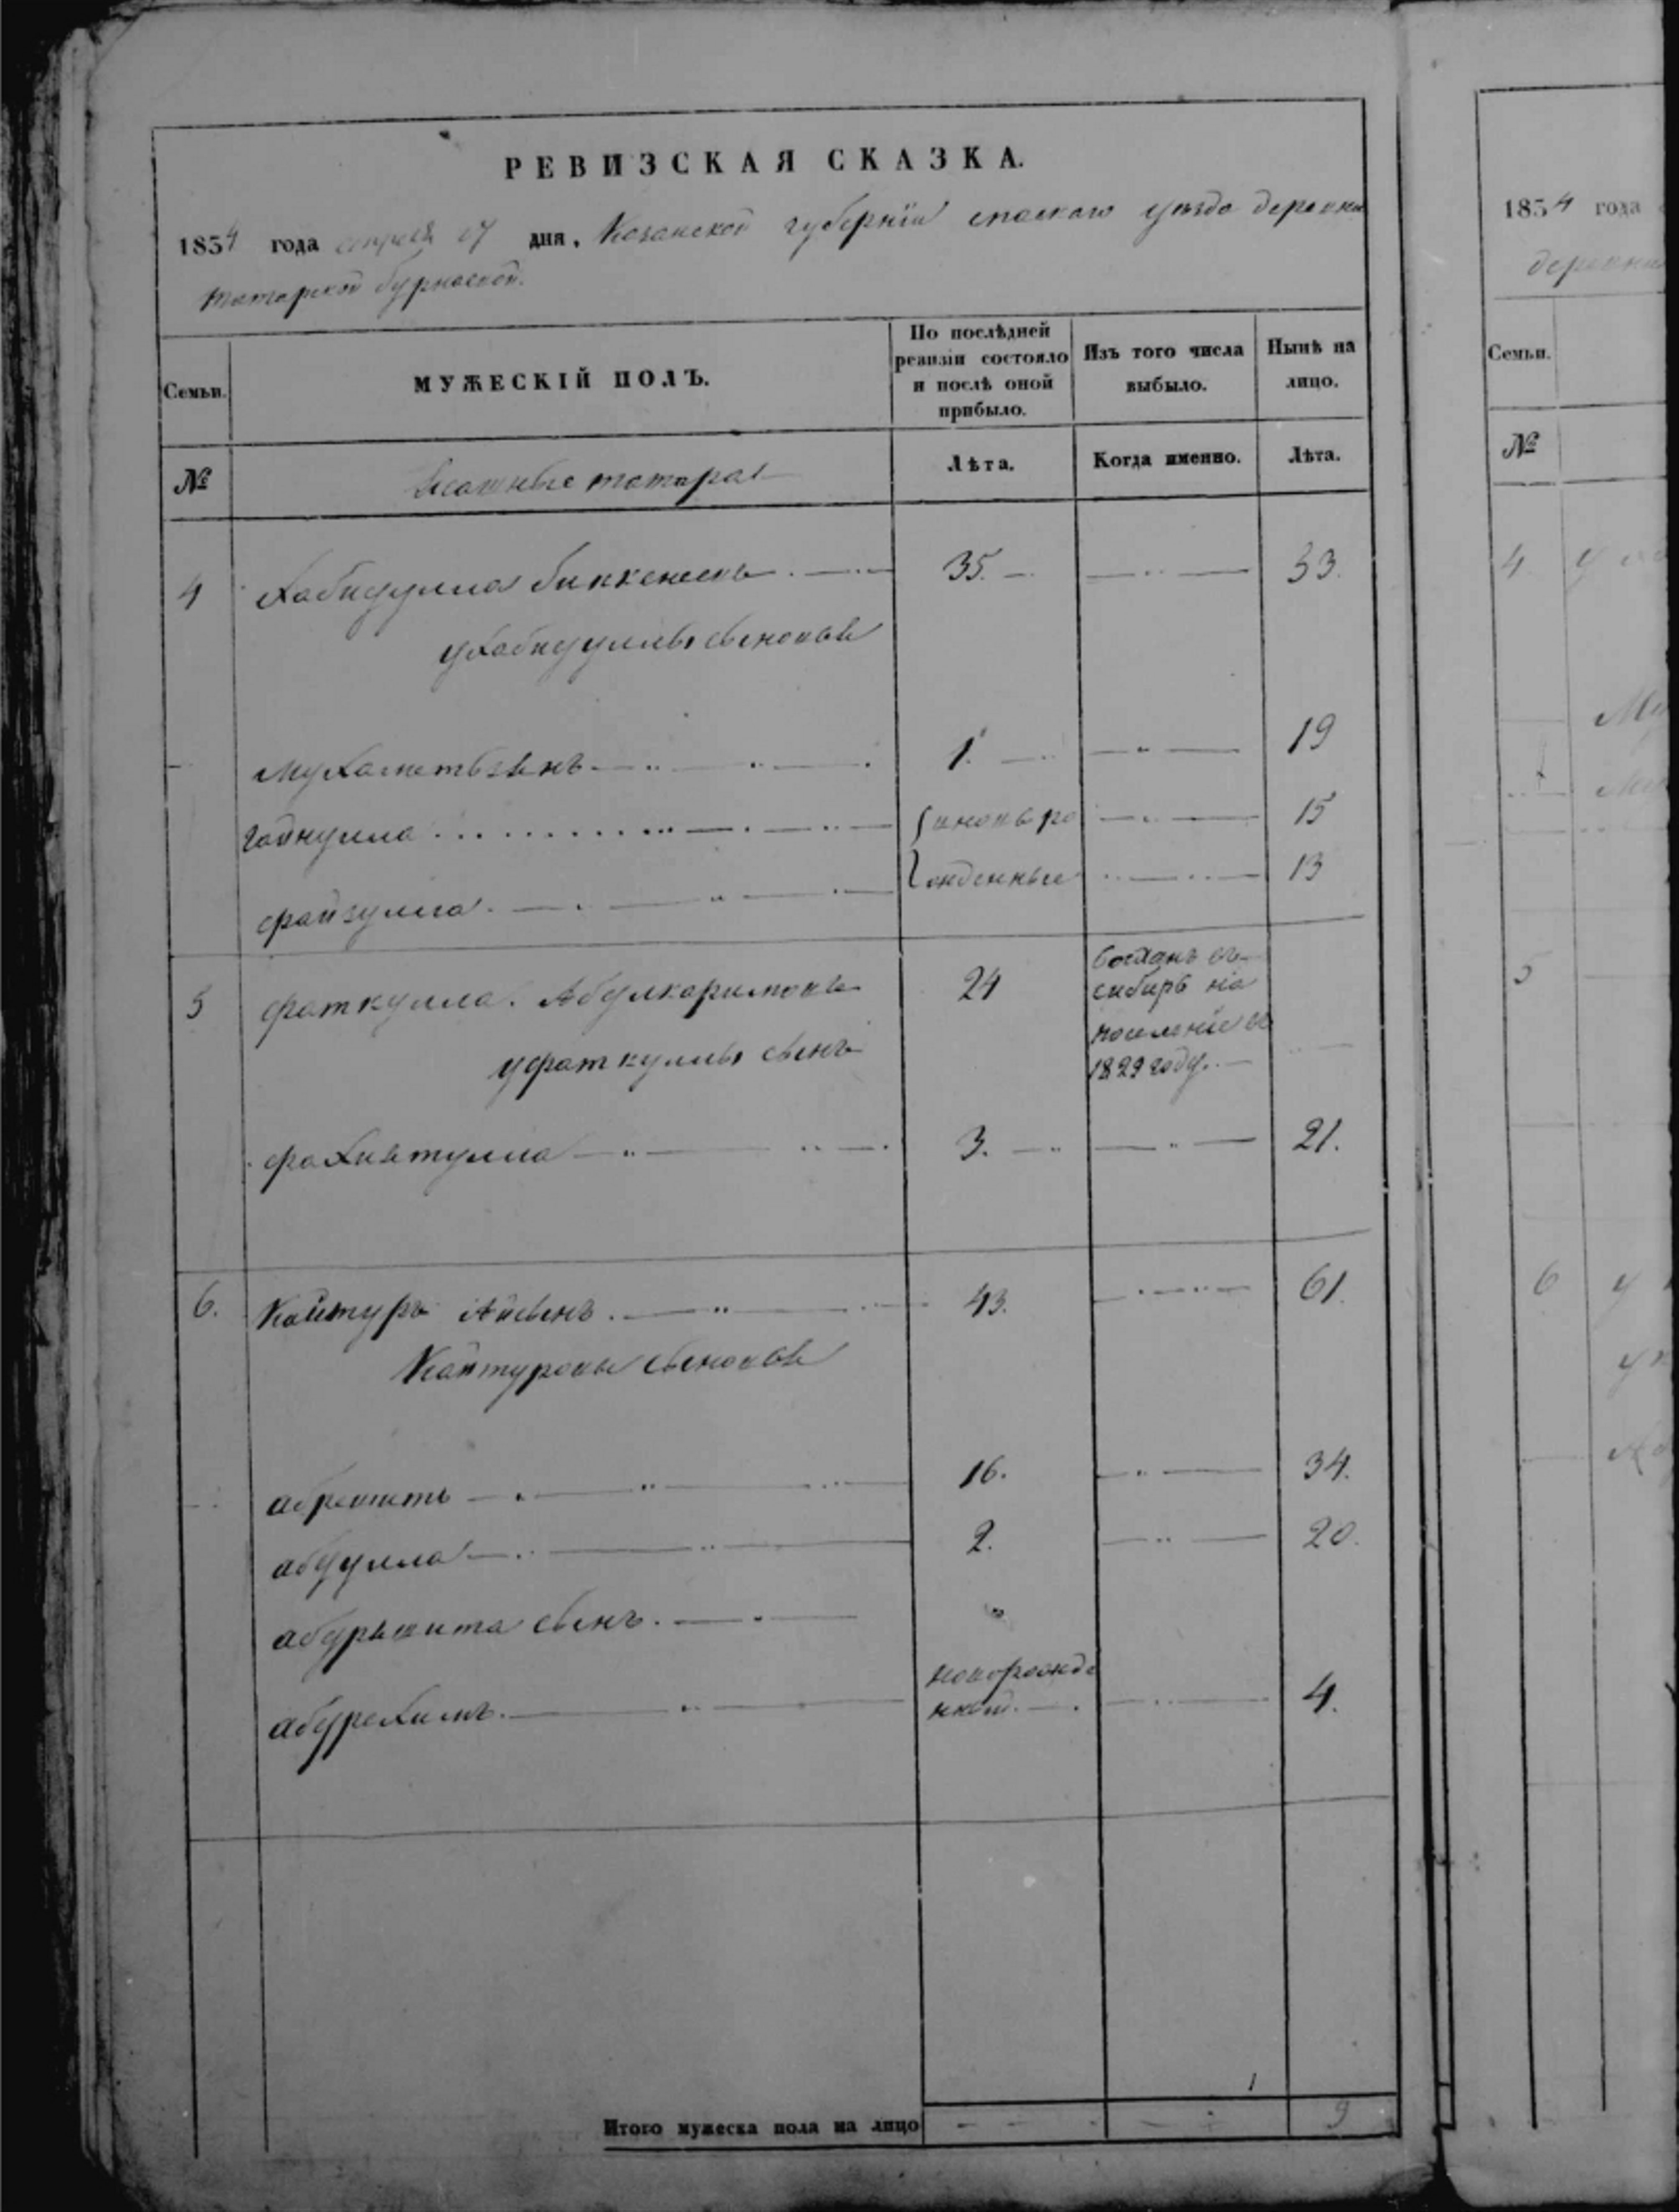 РЕВИЗСКАЯ СКАЗКА.
1854 года апреля 17 дня, Казанской губернїи спаскаго уезда деревни
татарской бурнаевой.
Семьи.
МУЖЕСКІЙ ПОЛЪ.
По послѣдней ревизіи состояло и послѣ оной прибыло.
Изъ того числа выбыло.
Нынѣ на лицо.
№
татара
Лѣта.
Когда именно.
Лѣта.
4 Хабидулла биккенеевъ 35. 53.
у Хабидуллы сыновья
мухаметьзянъ 1. 19
гайнулла 15
файзулла 13
новорожденные
5 фаткулла Абдулкаримовъ 24
сосланъ въ
сибирь на
поселенїе въ
1829 году.
у фаткуллы сынъ
фахивтулла 3. 21.
6. 43. 61.
сыновья
абрешитъ 16. 34.
абдулла 2. 20.
абдрешита сынъ.
абдрехимъ. новорожденной. 4.
Итого мужеска пола на лицо 9
1854 года
деревни
Семьи.
№
4
5
6